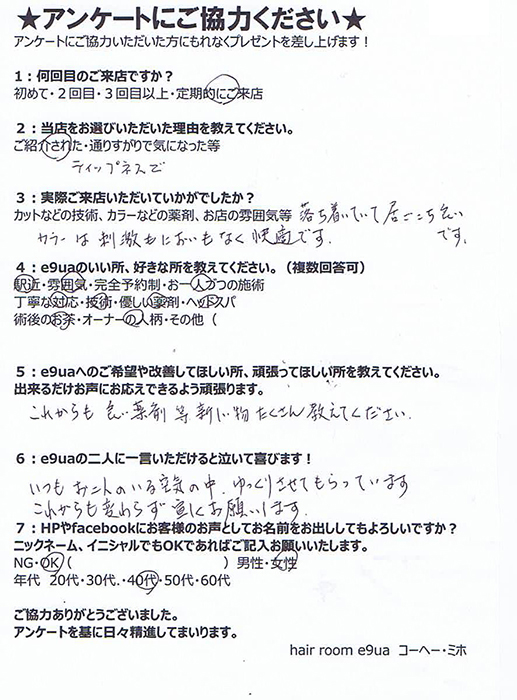 ★アンケートにご協力ください★
アンケートにご協力いただいた方にもれなくプレゼントを差し上げます！
1：何回目のご来店ですか？
初めて・2回目・3回目以上・定期的にご来店
2：当店をお選びいただいた理由を教えてください。
ご紹介された・通りすがりで気になった等
ティップネスで
3：実際ご来店いただいていかがでしたか？
カットなどの技術、カラーなどの薬剤、お店の雰囲気等 落ち着いていて居ごこち良い
カラーは刺激もにおいもなく快適です。 です。
4：e9uaのいい所、好きな所を教えてください。（複数回答可）
駅近・雰囲気・完全予約制・お一人づつの施術
丁寧な対応・技術・優しい薬剤・ヘッドスパ
術後のお茶・オーナーの人柄・その他（
5：e9uaへのご希望や改善してほしい所、頑張ってほしい所を教えてください。
出来るだけお声にお応えできるよう頑張ります。
これからも良い薬剤等新しい物たくさん教えてください。
6：e9uaの二人に一言いただけると泣いて喜びます！
いつもお二人のいる空気の中、ゆっくりさせてもらっています
これからも変わらず宜しくお願いします。
7：HPやfacebookにお客様のお声としてお名前をお出ししてもよろしいですか？
ニックネーム、イニシャルでもOKであればご記入お願いいたします。
NG・OK（ ）男性・女性
年代 20代・30代.・40代・50代・60代
ご協力ありがとうございました。
アンケートを基に日々精進してまいります。
hair room e9ua コーヘー・ミホ